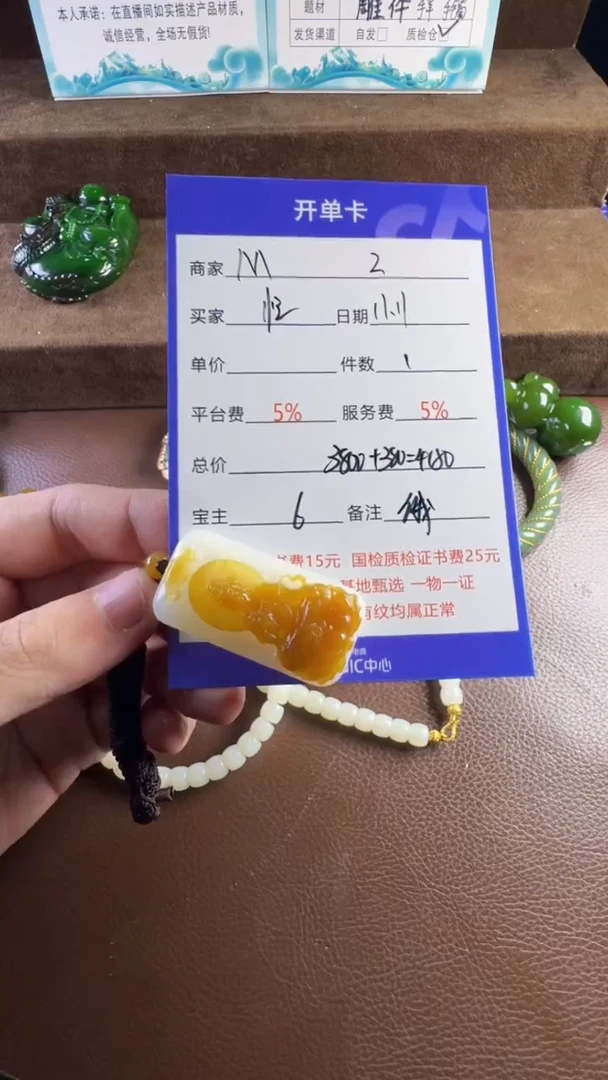 本人承诺：在直播间如实描述产品材质，
诚信经营，全场无假货！
题材 雕件
发货渠道 自发 质检仓
开单卡
商家 M 2
买家 日期 11.11
单价 件数 1
平台费 5% 服务费 5%
总价 3800+380=4180
宝主 6 备注 俄
书费15元 国检质检证书费25元
基地甄选 一物一证
有纹均属正常
IC中心